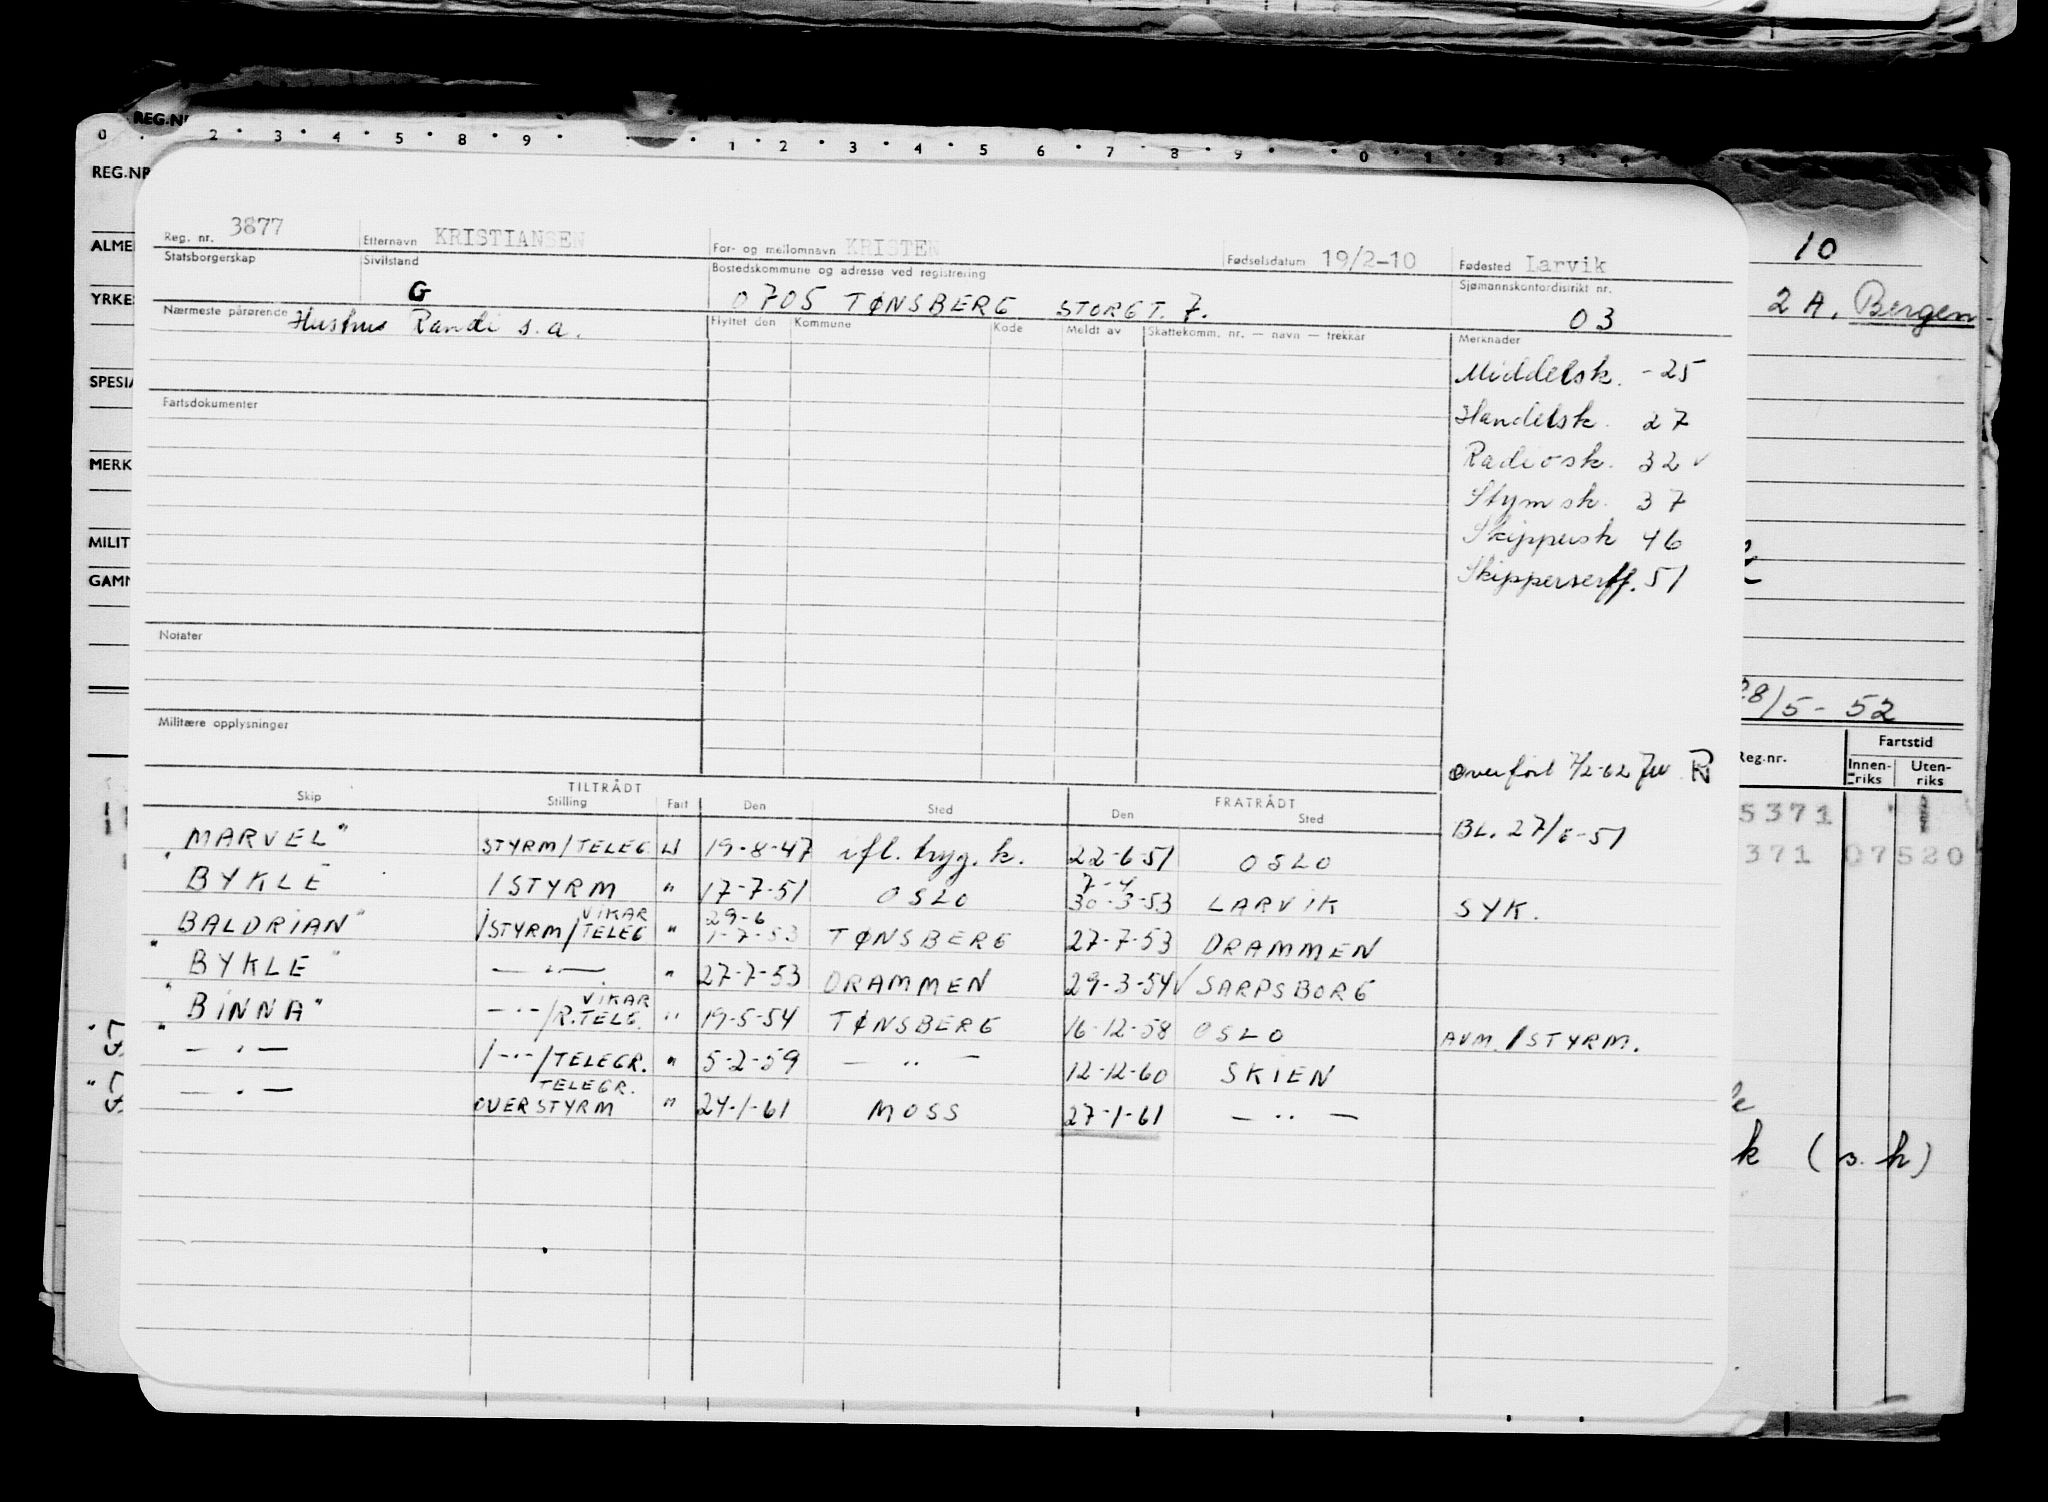 REG.N
0 2 3 4 5 8 9 1 2 3 4 5 6 7 8 9 0 1 2 3
REG.NR
ALME
YRKE
SPESIA
MERK
MILIT
GAMM
10
2 A. Bergen
28/5 - 52
Reg.nr. Fartstid
Innen-riks Uten-riks
5371
371 07520
k (s. h)
Reg. nr. 3877 Etternavn KRISTIANSEN For- og mellomnavn KRISTEN Fødselsdatum 19/2-10 Fødested Larvik
Statsborgerskap Sivilstand G Bostedskommune og adresse ved registrering 0705 TØNSBERG STORGT. 7. Sjømannskontordistrikt nr. 03
Nærmeste pårørende Hustru Randi s.a. Flyttet den Kommune Kode Meldt av Skattekomm. nr. — navn — trekkår Merknader
Middelsk. -25
Handelsk. 27
Radiosk. 32 v
Stymsk. 37
Skippersk 46
Skippersertf. 51
Fartsdokumenter
Notater
Militære opplysninger
Overført 7/2-62 R
TILTRÅDT FRATRÅDT
Skip Stilling Fart Den Sted Den Sted
BL. 27/6-51
MARVEL" STYRM/TELEG. U 19-8-47 ifl. tryg. k. 22-6-51 OSLO
" BYKLE 1STYRM " 17-7-51 OSLO 7-4 30-3-53 LARVIK SYK.
BALDRIAN" 1STYRM/VIKAR TELEG " 29-6 1-7-53 TØNSBERG 27-7-53 DRAMMEN
" BYKLE" — " — " 27-7-53 DRAMMEN 29-3-54 V SARPSBORG
" BINNA" —"—/VIKAR R.TELG. " 19-5-54 TØNSBERG 16-12-58 OSLO AVM. 1STYRM.
" — " — 1—"—/TELEGR. " 5-2-59 — " — 12-12-60 SKIEN
— " — TELEGR. OVERSTYRM " 24-1-61 MOSS 27-1-61 — " —